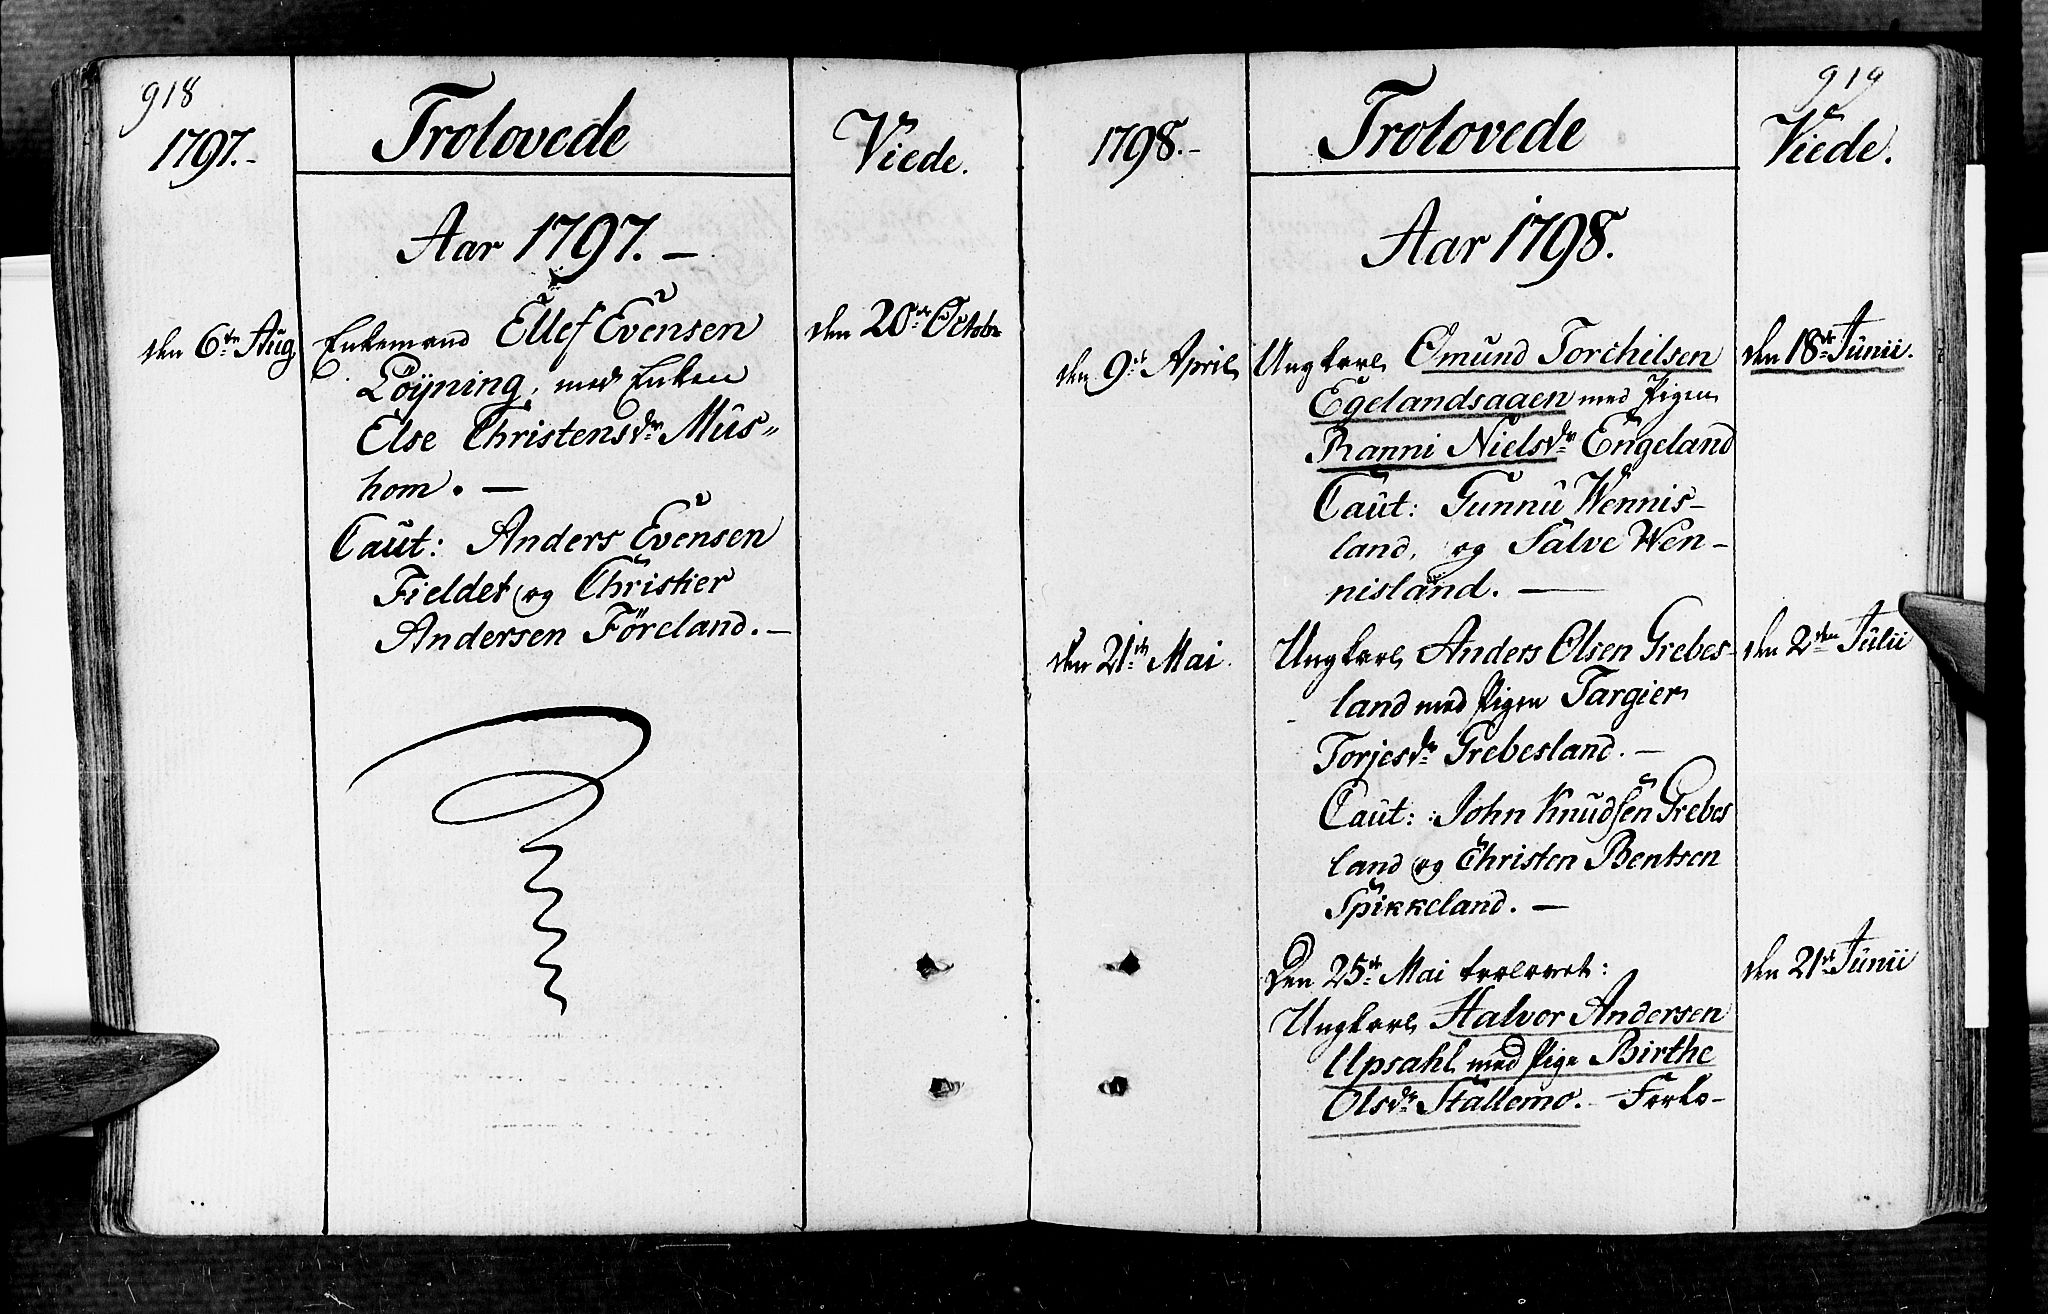 918
1797.-
Trolovede
Viede.
Aar 1797. -
den 6te Aug
Enkemand Ellef Evensen
Löyning, med Enken
Else Christensdr Mus„
hom. -
Caut: Anders Evensen
Fieldet og Christier
Andersen Föreland. -
den 20de Octobr
919
1798.-
Trolovede
Viede.
Aar 1798.
den 9de April
Ungkarl Omund Torchilsen
Egelandsaaen med Pigen
Ranni Nielsdr Engeland
Caut: Gunnu Wennis-
land, og Salve Wen-
nisland. -
den 18de Junii.
den 21de Mai.
Ungkarl Anders Olsen Grebes-
land med Pigen Targier
Torjesdr Grebesland. -
Caut: John Knudsen Grebes
land og Christen Bentsen
Spikkeland. -
den 2den Julii
Den 25de Mai trolovet:
Ungkarl Halvor Andersen
Upsahl med Pige Birthe
Olsdr Stallemo. - Forlo-
den 21de Junii